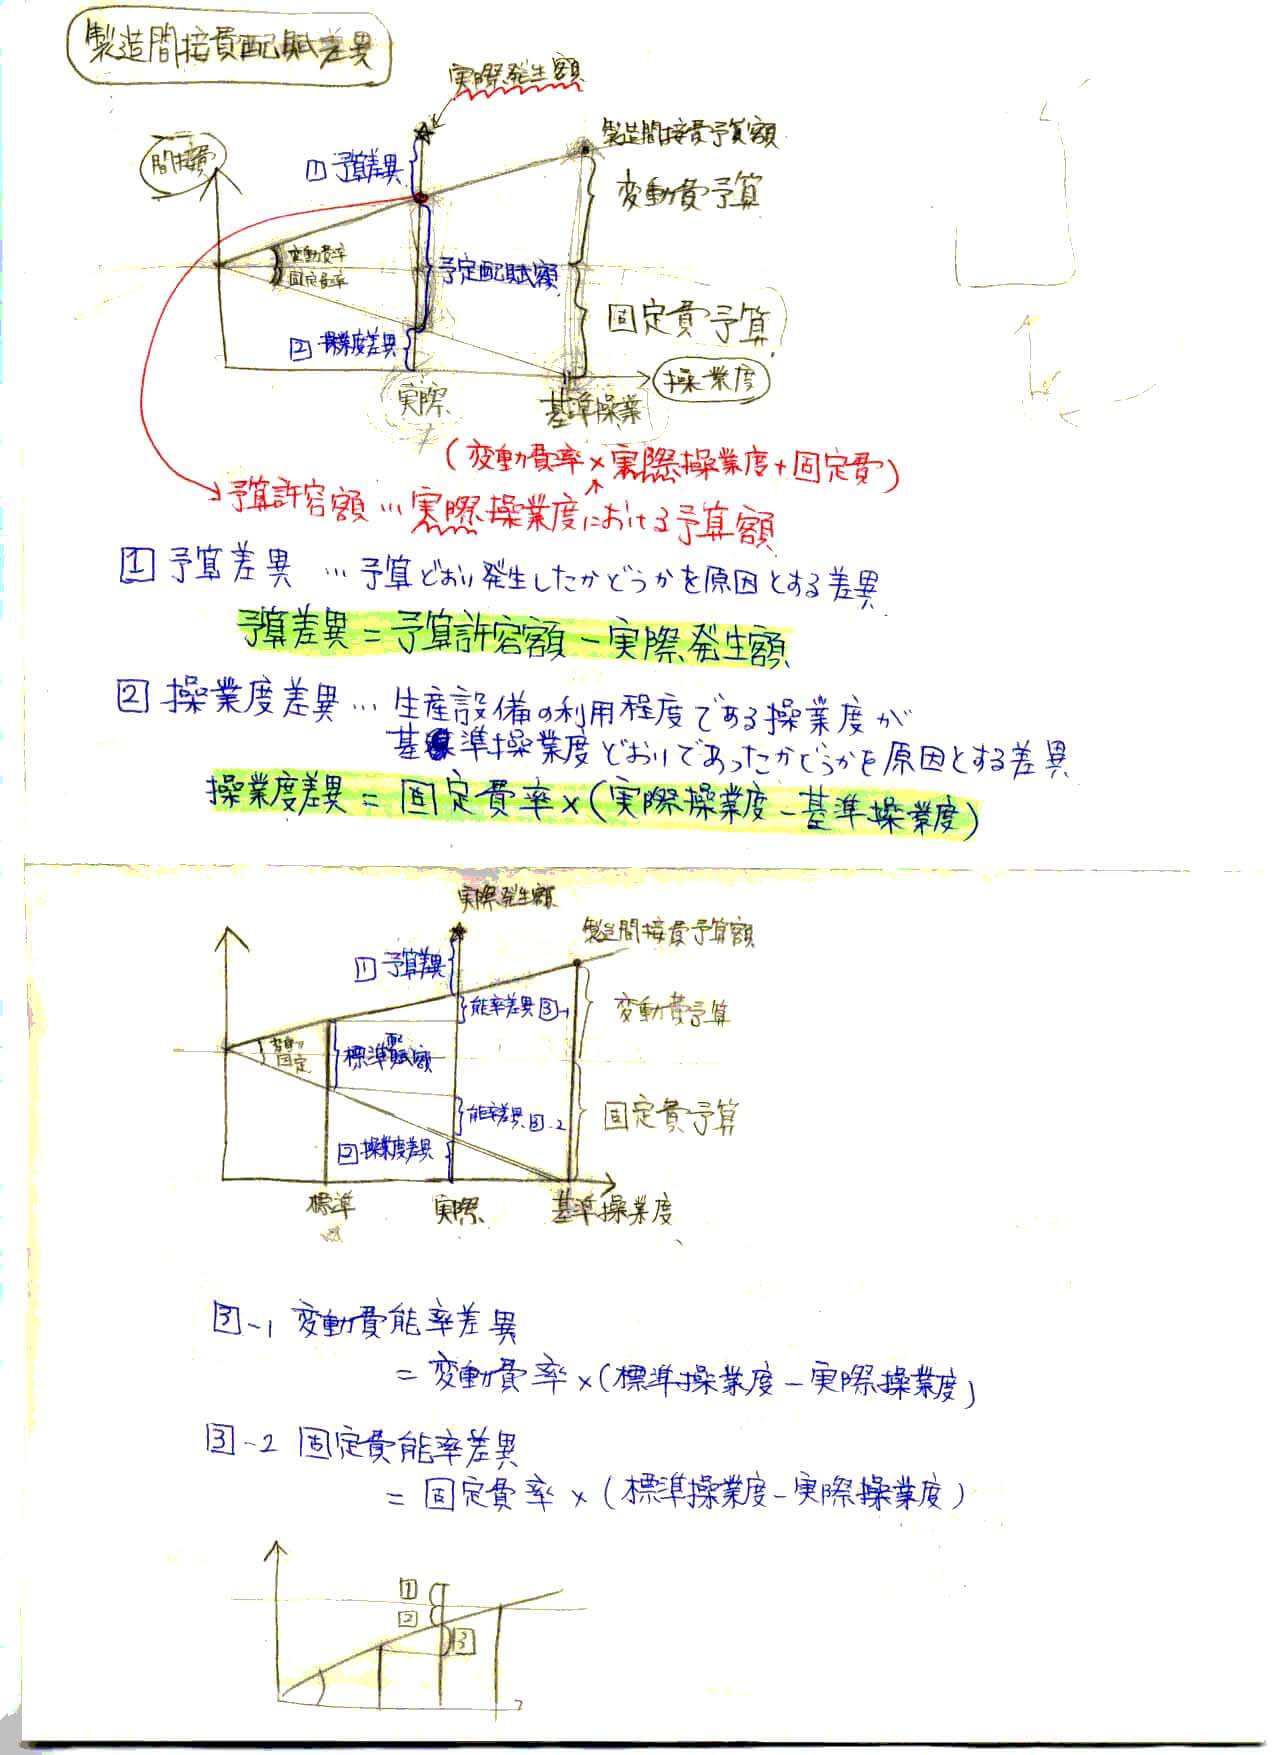 製造間接費配賦差異
実際発生額
間接費
製造間接費予算額
①予算差異
変動費予算
変動費率
固定費率
予定配賦額
固定費予算
②操業度差異
操業度
実際
基準操業
(変動費率×実際操業度+固定費)
予算許容額…実際操業度における予算額
①予算差異…予算どおり発生したかどうかを原因とする差異
予算差異=予算許容額-実際発生額
②操業度差異…生産設備の利用程度である操業度が
基準操業度どおりであったかどうかを原因とする差異
操業度差異=固定費率×(実際操業度-基準操業度)
実際発生額
製造間接費予算額
①予算差異
能率差異③-1
変動費予算
変動
固定
標準配賦額
能率差異③-2
固定費予算
②操業度差異
標準
実際
基準操業度
③-1 変動費能率差異
=変動費率×(標準操業度-実際操業度)
③-2 固定費能率差異
=固定費率×(標準操業度-実際操業度)
①
②
③